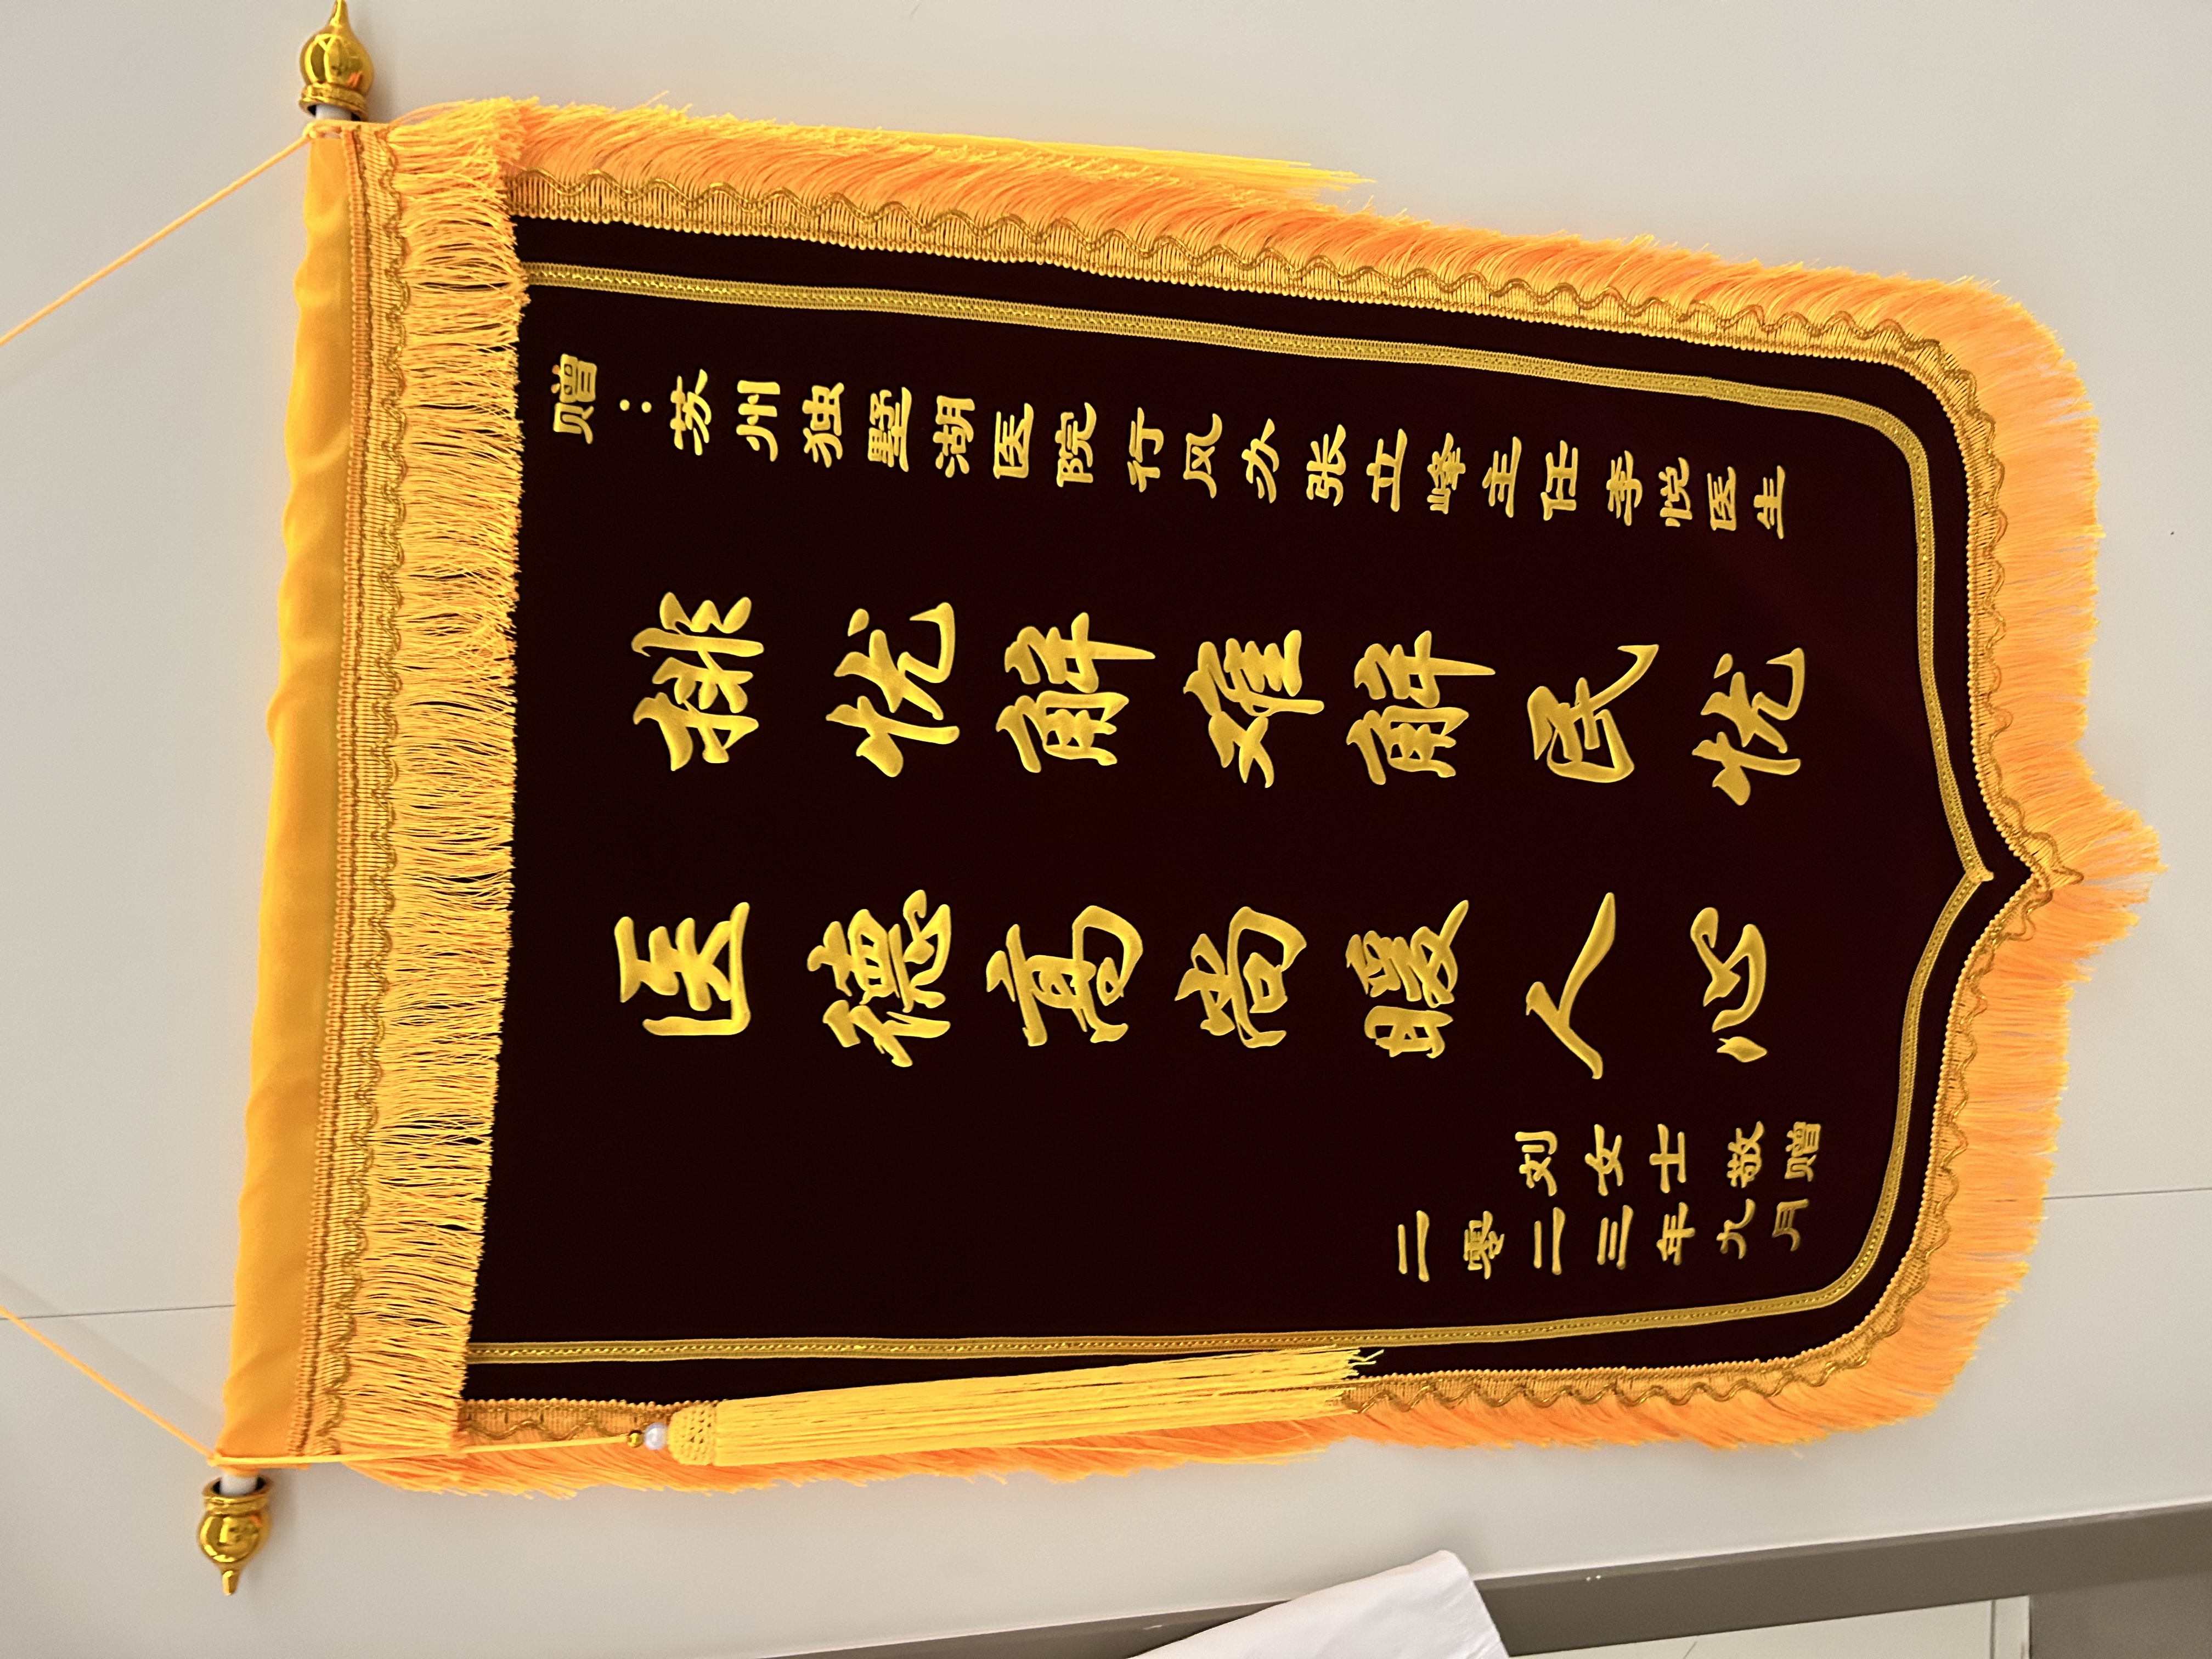 赠：苏州独墅湖医院行风办张立峰主任李悦医生
排忧解难解民忧
医德高尚暖人心
刘女士敬赠
二零二三年九月